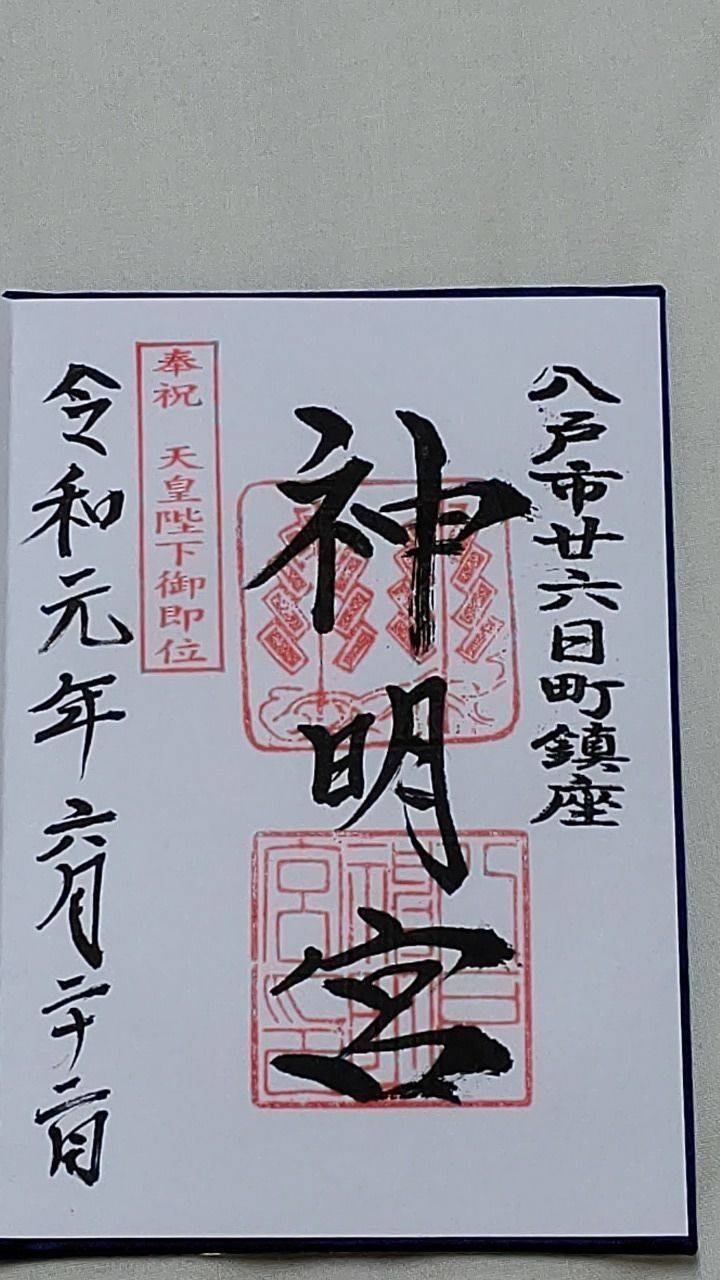 八戸市廿六日町鎮座
神明宮
奉祝 天皇陛下御即位
令和元年六月二十二日